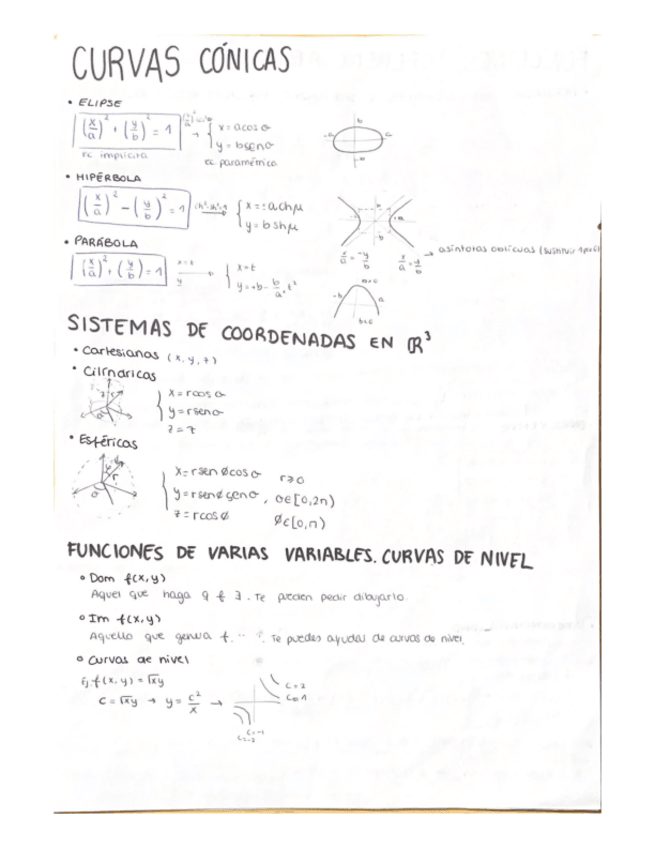 CURVAS CÓNICAS
• ELIPSE
(x/a)² + (y/b)² = 1 → { x = a cos θ
y = b sen θ
ec implícita ec paramétrica
• HIPÉRBOLA
(x/a)² - (y/b)² = 1 → { x = ± a ch μ
y = b sh μ
x/a = -y/b x/a = y/b → asíntotas oblicuas
• PARÁBOLA
(x/a)² + (y/b) = 1 x=t → { x = t
SISTEMAS DE COORDENADAS EN ℝ³
• Cartesianas (x, y, z)
• Cilíndricas
{ x = r cos θ
y = r sen θ
z = z
• Esféricas
{ x = r sen ø cos θ r≥0
y = r sen ø sen θ, θ∈[0,2π)
z = r cos ø ø∈[0,π)
FUNCIONES DE VARIAS VARIABLES. CURVAS DE NIVEL
• Dom f(x,y)
Aquel que haga q f ∃. Te pueden pedir dibujarlo.
• Im f(x,y)
Aquello que genera f. Te puedes ayudar de curvas de nivel.
• Curvas de nivel
Ej f(x,y) = √xy
C = √xy → y = c²/x →
C=2
C=1
C=-1
C=-2